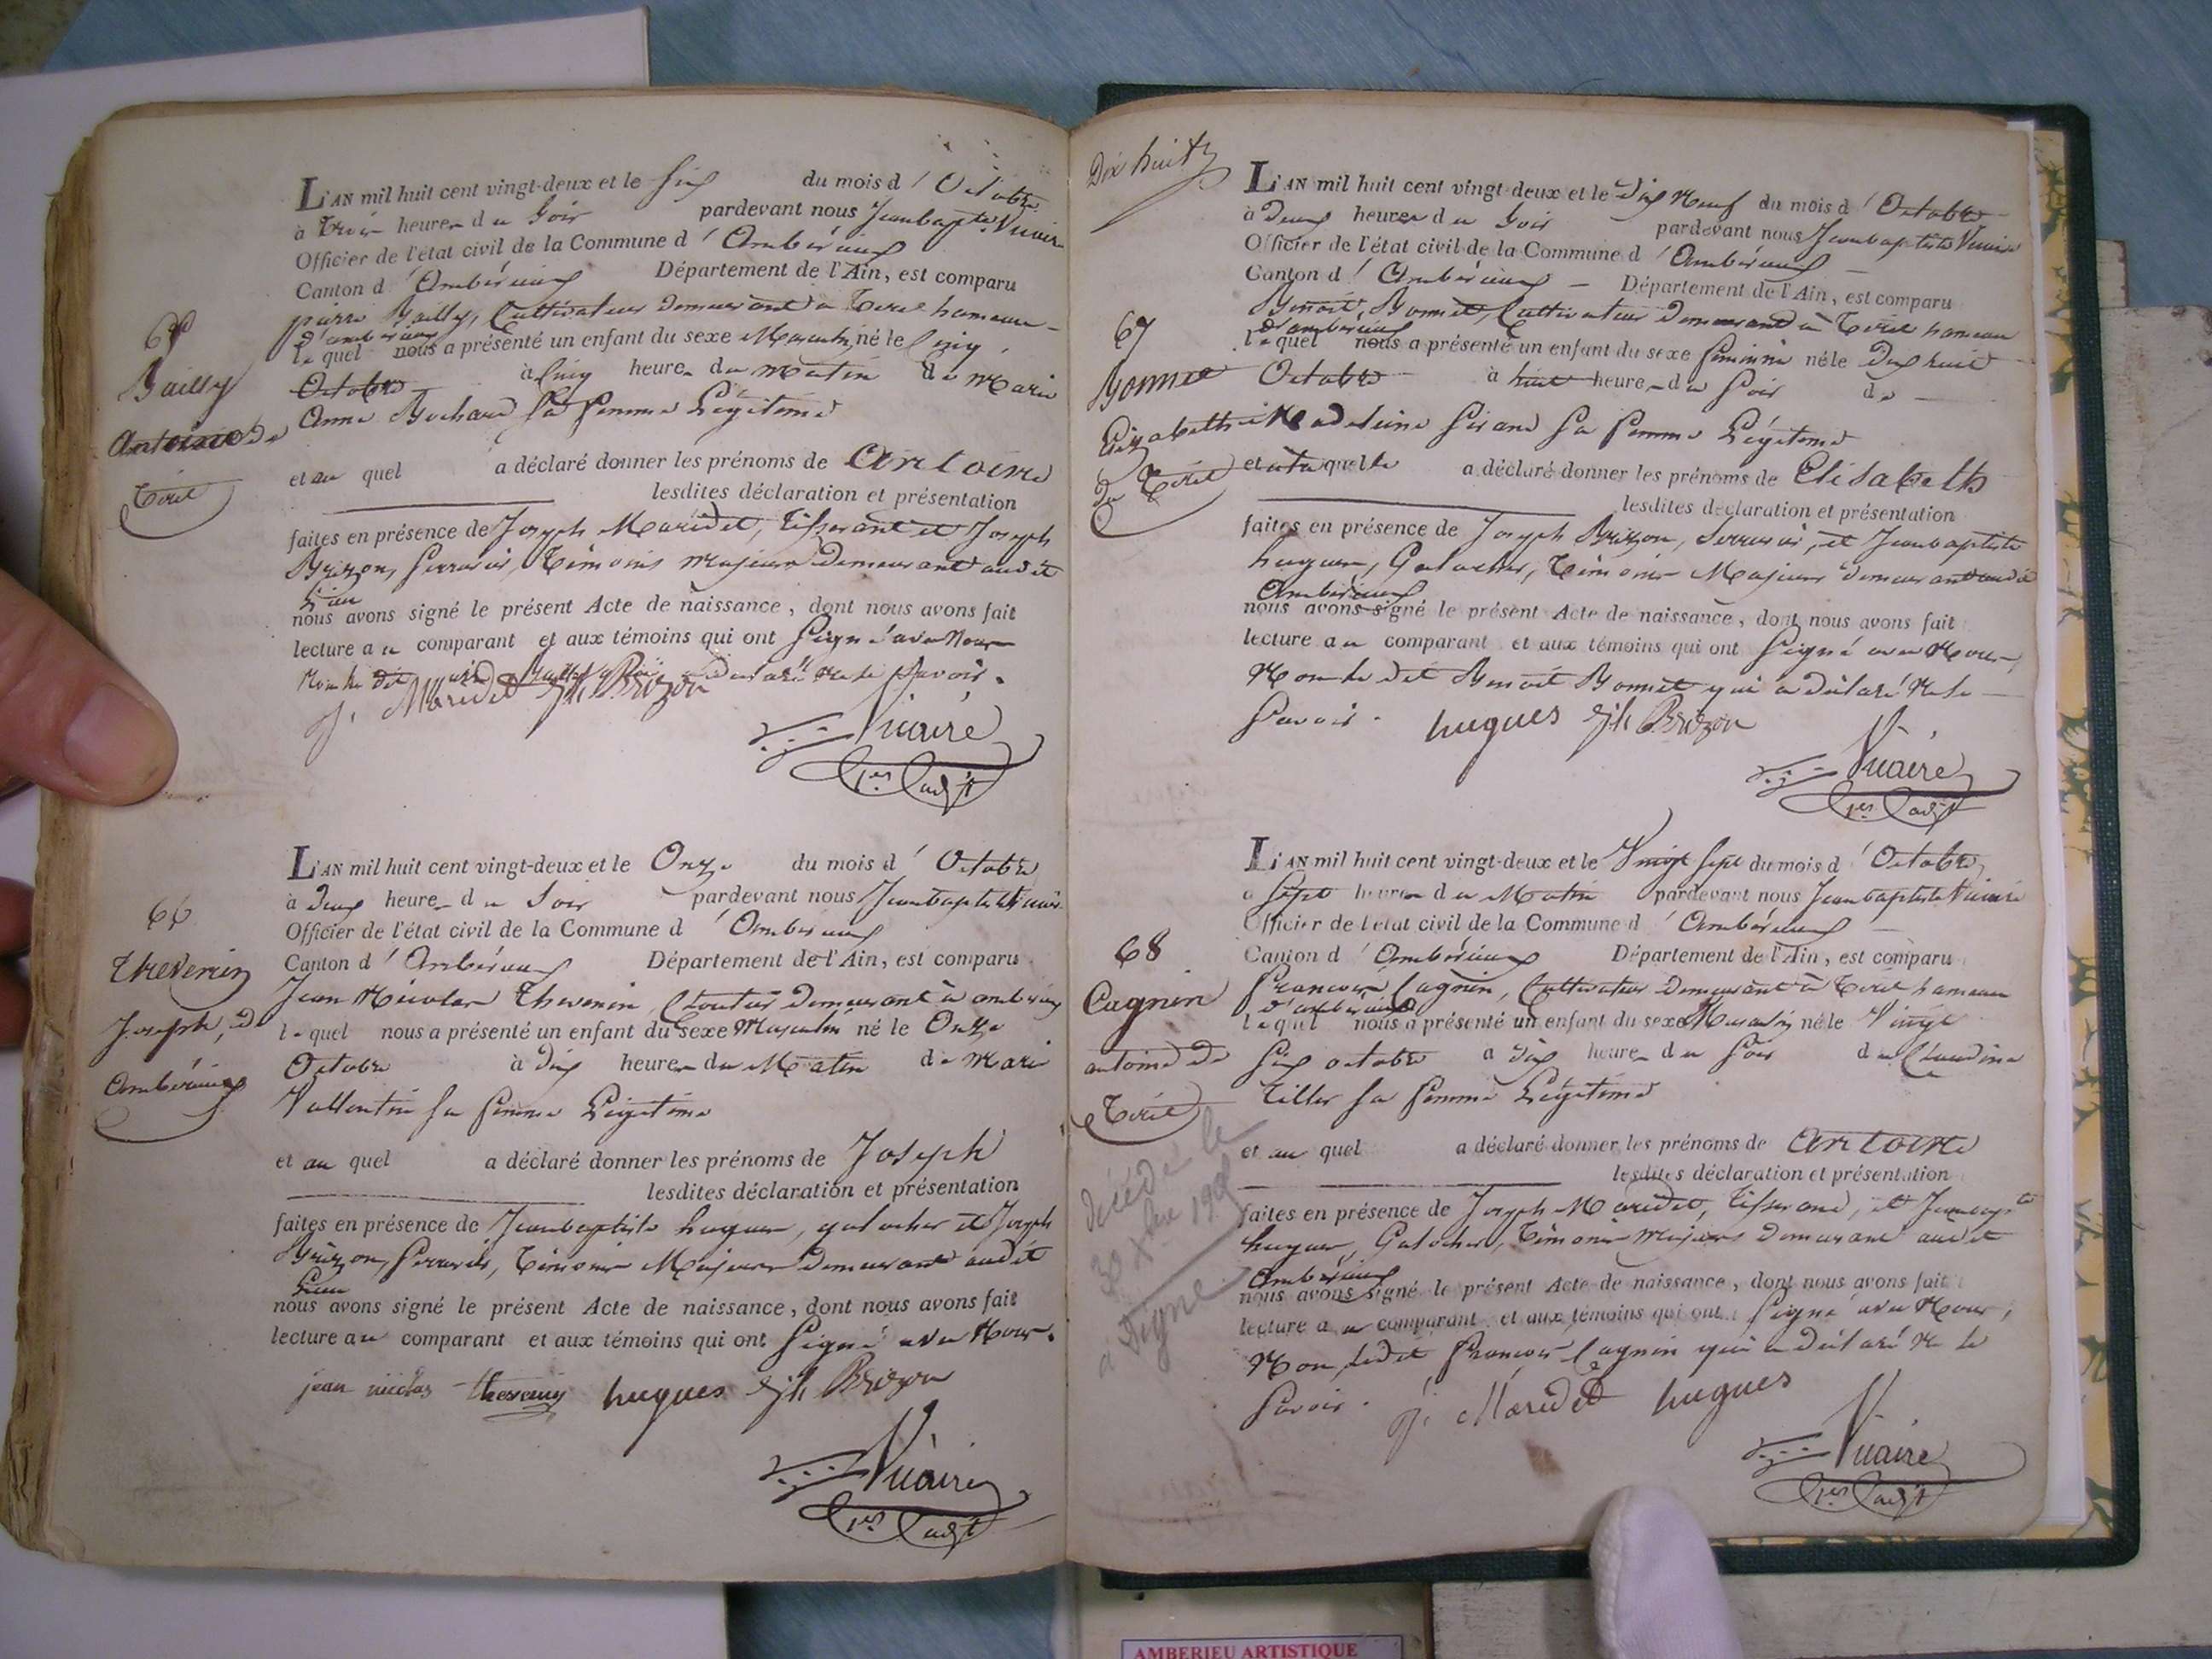 L'AN mil huit cent vingt-deux et le six du mois d' Octobre
à trois heures du soir pardevant nous Jeanbapte Vicaire
Officier de l'état civil de la Commune d' Ambérieux
Canton d' Ambérieux Département de l'Ain, est comparu
pierre Bailly, Cultivateur demeurant à Tiret hameau
d'ambérieux
lequel nous a présenté un enfant du sexe Masculin né le cinq
Octobre à cinq heures du matin de Marie
Anne Bochard sa femme Légitime
65
Bailly
Antoine de
Tiret
et au quel a déclaré donner les prénoms de Antoine
lesdites déclaration et présentation
faites en présence de Joseph Maridet, Tisserant et Joseph
Brizon, serrurier, Témoins majeurs demeurant audit
Lieu
nous avons signé le présent Acte de naissance, dont nous avons fait
lecture au comparant et aux témoins qui ont signé avec Nous
Non le dit Bailly déclaré ne le savoir.
J. Maridet Jh Brizon
Vicaire
1er adjt
L'AN mil huit cent vingt-deux et le Onze du mois d' Octobre
à deux heures du soir pardevant nous Jeanbaptiste Vicaire
Officier de l'état civil de la Commune d' Ambérieux
Canton d' Ambérieux Département de l'Ain, est comparu
Jean Nicolas Thevenin, demeurant à ambérieux
lequel nous a présenté un enfant du sexe Masculin né le Onze
Octobre à dix heures du Matin de Marie
Vallentin sa femme Légitime
66
Thevenin
Joseph, d'
Ambérieux
et au quel a déclaré donner les prénoms de Joseph
lesdites déclaration et présentation
faites en présence de Jeanbaptiste hugues, galocher et Joseph
Brizon, serrurier, Témoins Majeurs demeurant audit
Lieu
nous avons signé le présent Acte de naissance, dont nous avons fait
lecture au comparant et aux témoins qui ont signé avec Nous.
jean nicolas thevenin hugues Jh Brizon
Vicaire
1er adjt
Dix huit
L'AN mil huit cent vingt-deux et le dix Neuf du mois d' Octobre
à deux heures du soir pardevant nous Jeanbaptiste Vicaire
Officier de l'état civil de la Commune d' Ambérieux
Canton d' Ambérieux Département de l'Ain, est comparu
Benoit Bonnet, Cultivateur demeurant à Tiret hameau
d'ambérieux
lequel nous a présenté un enfant du sexe féminin né le dix huit
Octobre à huit heures du soir de
Madeleine Sirand sa femme Légitime
67
Bonnet
Elizabeth
de Tiret
et à laquelle a déclaré donner les prénoms de Elisabeth
lesdites déclaration et présentation
faites en présence de Joseph Brizon, serrurier, et Jeanbaptiste
hugues, Galocher, Témoins Majeurs demeurant audit
Ambérieux
nous avons signé le présent Acte de naissance, dont nous avons fait
lecture au comparant et aux témoins qui ont signé avec Nous
Non le dit Benoit Bonnet qui a déclaré Ne le
savoir. hugues Jh Brizon
Vicaire
1er adjt
L'AN mil huit cent vingt-deux et le Vingt sept du mois d' Octobre
à sept heures du Matin pardevant nous Jeanbaptiste Vicaire
Officier de l'état civil de la Commune d' Ambérieux
Canton d' Ambérieux Département de l'Ain, est comparu
François Cagnin, Cultivateur demeurant à Tiret hameau
d'ambérieux
lequel nous a présenté un enfant du sexe Masculin né le Vingt
six octobre à dix heures du soir de Claudine
Tiller sa femme Légitime
68
Cagnin
antoine de
Tiret
et au quel a déclaré donner les prénoms de Antoine
lesdites déclaration et présentation
faites en présence de Joseph Maridet, Tisserand, et Jeanbapte
hugues, Galocher, Témoins majeurs demeurant audit
Ambérieux
nous avons signé le présent Acte de naissance, dont nous avons fait
lecture au comparant et aux témoins qui ont signé avec Nous,
Non ledit François Cagnin qui a déclaré Ne le
savoir. J. Maridet hugues
Vicaire
1er adjt
décédé le
30 Xbre
a Digne
AMBERIEU ARTISTIQUE